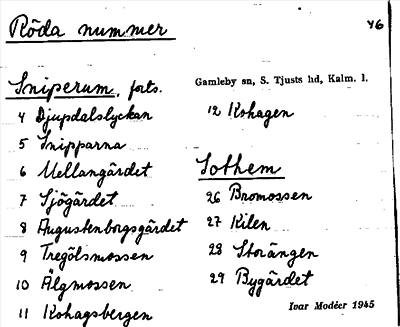 Röda nummer
46
Sniperum, forts.
Gamleby sn, S. Tjusts hd, Kalm. l.
4 Djupdalslyckan
5 Snipparna
6 Mellangärdet
7 Sjögärdet
8 Augustenborgsgärdet
9 Tregölsmossen
10 Älgmossen
11 Kohagsbergen
12 Kohagen
Sothem
26 Bromossen
27 Kilen
28 Storängen
29 Bygärdet
Ivar Modéer 1945